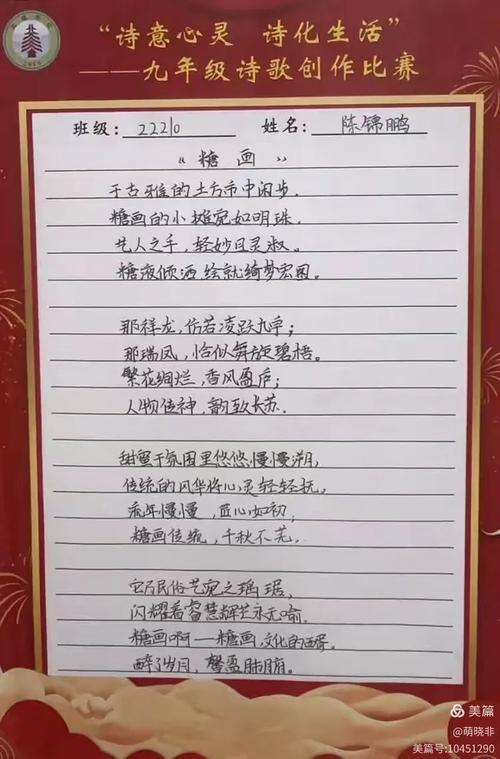 “诗意心灵 诗化生活”
——九年级诗歌创作比赛
班级：22210 姓名：陈锦鹏
《糖画》
于古雅的土方市中闲步，
糖画的小摊宛如明珠。
艺人之手，轻妙且灵淑。
糖液倾洒，绘就绮梦宏图。
那祥龙，仿若凌跃九宇；
那瑞凤，恰似舞旋碧梧。
繁花绚烂，香风盈庐；
人物传神，韵致长苏。
甜蜜于氛围里悠悠慢慢溯，
传统的风华将心灵轻轻抚。
流年慢慢，匠心如初，
糖画传统，千秋不芜。
它乃民俗艺宛之瑶琚，
闪耀着智慧辉芒永无喻。
糖画啊——糖画，文化的醑，
醉了岁月，馨盈肺腑。
美篇
@萌晓非
美篇号:10451290